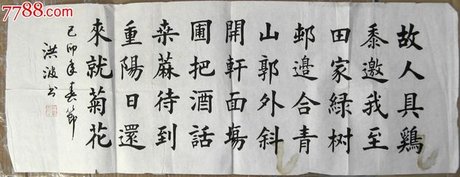 7788.com
故人具鷄
黍邀我至
田家緑树
邨邊合青
山郭外斜
開軒面塲
圃把酒話
桒蔴待到
重陽日還
來就菊花
己卯年春節
洪波书